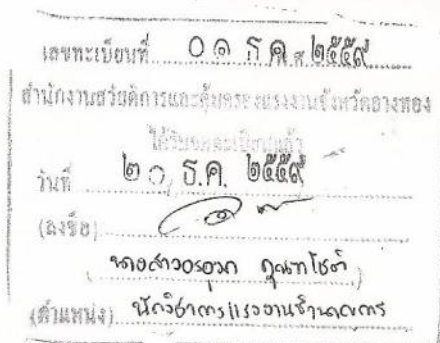 เลขทะเบียนที่ ๐๑ ธ.ค. ๒๕๕๙
สำนักงานสวัสดิการและคุ้มครองแรงงานจังหวัดอ่างทอง
ได้รับจดทะเบียนแล้ว
วันที่ ๒๐ ธ.ค. ๒๕๕๙
(ลงชื่อ)
( นางสาวอรอุมา )
(ตำแหน่ง) นักวิชาการแรงงานชำนาญการ